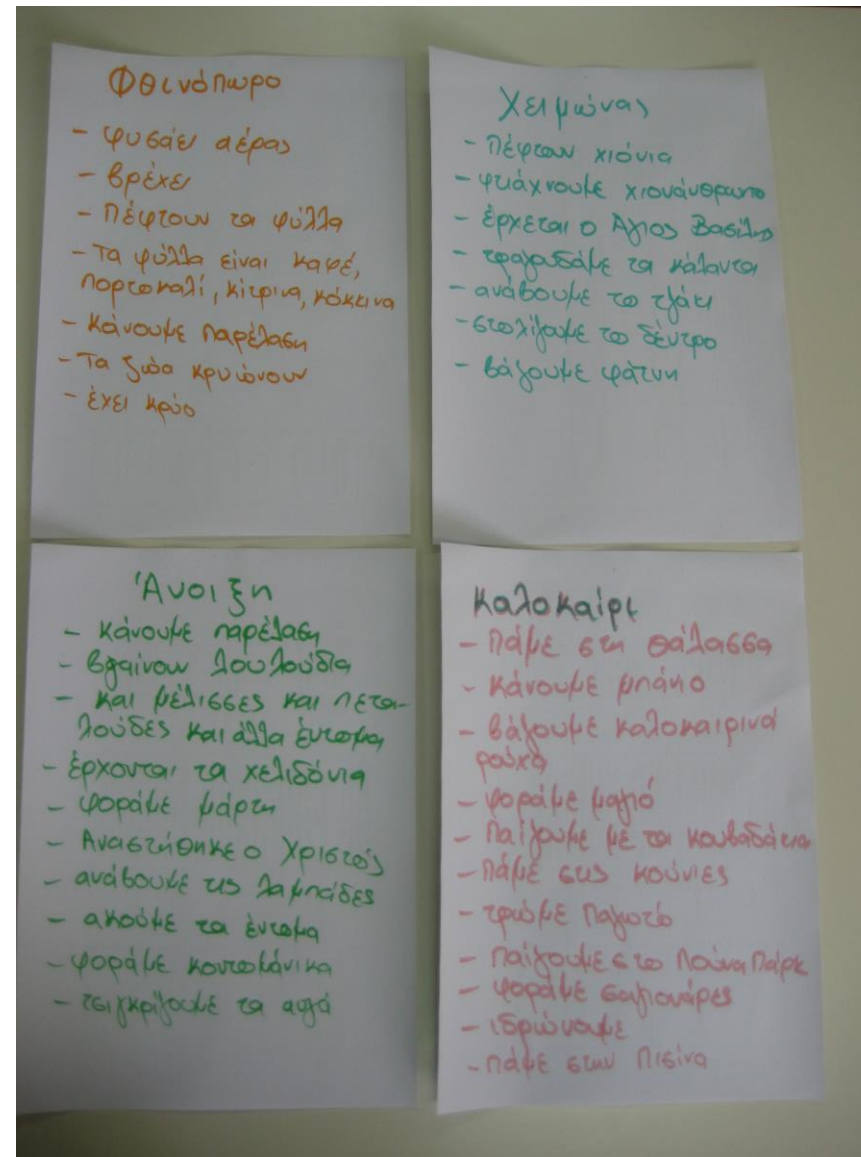 Φθινόπωρο
- φυσάει αέρας
- βρέχει
- Πέφτουν τα φύλλα
- Τα φύλλα είναι καφέ,
πορτοκαλί, κίτρινα, κόκκινα
- κάνουμε παρέλαση
- Τα ζώα κρυώνουν
- έχει κρύο
Χειμώνας
- πέφτουν χιόνια
- φτιάχνουμε χιονάνθρωπο
- έρχεται ο Άγιος Βασίλης
- τραγουδάμε τα κάλαντα
- ανάβουμε το τζάκι
- στολίζουμε το δέντρο
- βάζουμε φάτνη
Άνοιξη
- κάνουμε παρέλαση
- βγαίνουν λουλούδια
- και μέλισσες και πετα-
λούδες και άλλα έντομα
- έρχονται τα χελιδόνια
- φοράμε μάρτη
- Αναστήθηκε ο Χριστός
- ανάβουμε τις λαμπάδες
- ακούμε τα έντομα
- φοράμε κοντομάνικα
- τσιγκρίζουμε τα αυγά
Καλοκαίρι
- πάμε στη θάλασσα
- κάνουμε μπάνιο
- βάζουμε καλοκαιρινά
ρούχα
- φοράμε μαγιό
- παίζουμε με τα κουβαδάκια
- πάμε στις κούνιες
- τρώμε παγωτό
- παίζουμε στο Λούνα Παρκ
- φοράμε σαγιονάρες
- ιδρώνουμε
- πάμε στην πισίνα